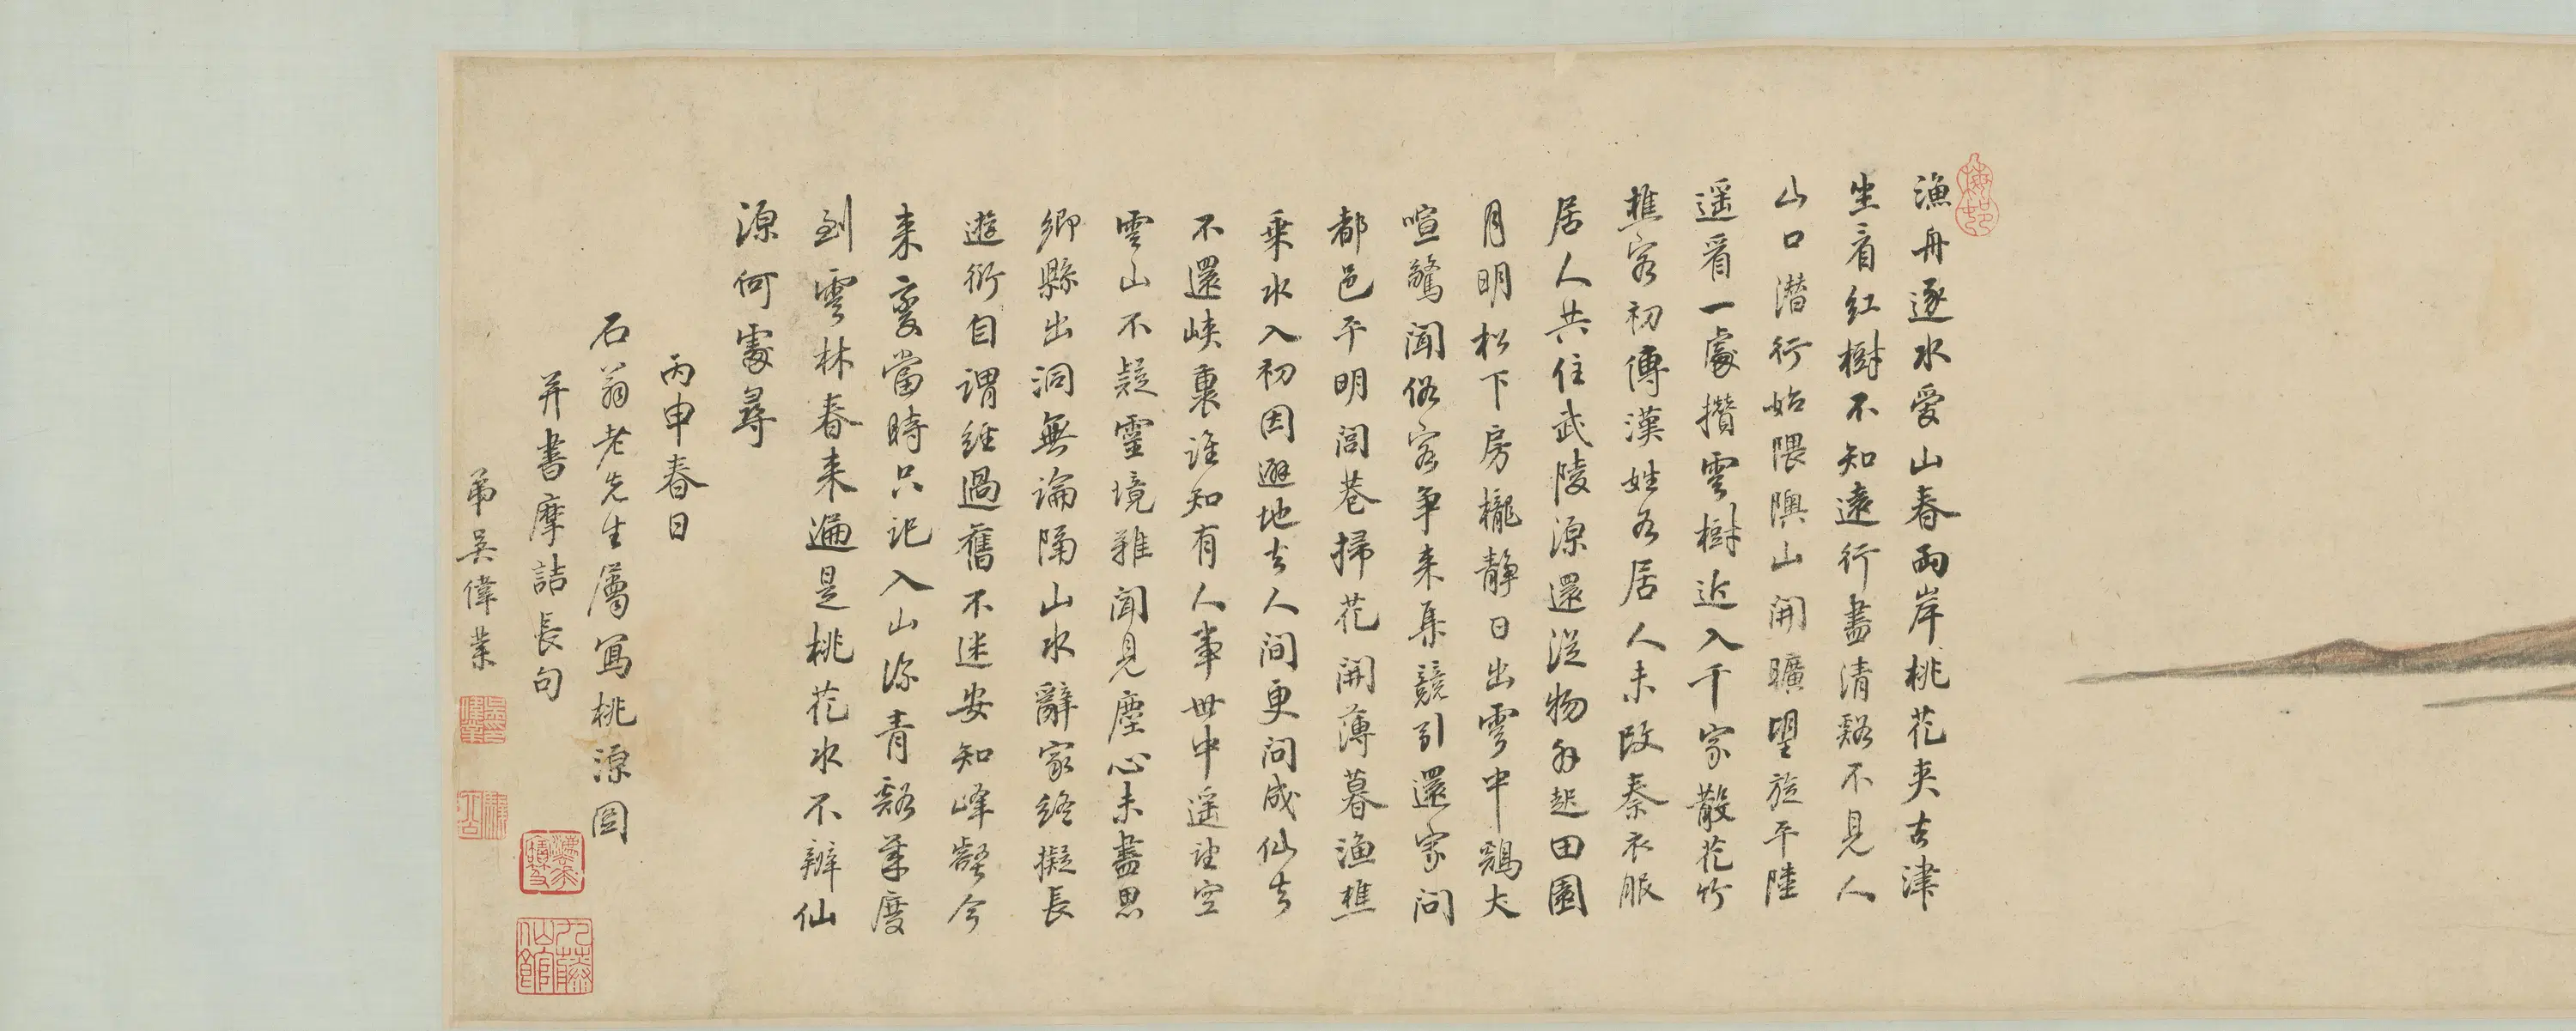 梅邨
漁舟逐水愛山春兩岸桃花夾去津
坐看紅樹不知遠行盡清谿不見人
山口潛行始隈隩山開曠望旋平陸
遥看一處攢雲樹近入千家散花竹
樵客初傳漢姓名居人未改秦衣服
居人共住武陵源還從物外起田園
月明松下房櫳静日出雲中鷄犬
喧驚聞俗客爭来集競引還家問
都邑平明閭巷掃花開薄暮漁樵
乗水入初因避地去人間更問成仙去
不還峽裏誰知有人事世中遥望空
雲山不疑靈境難聞見塵心未盡思
鄉縣出洞無論隔山水辭家終擬長
遊衍自謂經過舊不迷安知峰壑今
来變當時只記入山深青谿幾度
到雲林春来遍是桃花水不辨仙
源何處尋
丙申春日
石翁老先生屬寫桃源圖
并書摩詰長句
弟吳偉業
吳偉業印
九藤仙館